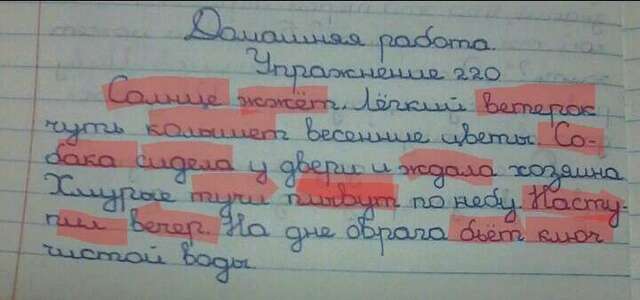 Домашняя работа.
Упражнение 220
Солнце жжёт. Лёгкий ветерок
чуть колышет весенние цветы. Со-
бака сидела у двери и ждала хозяина
Хмурые тучи плывут по небу. Насту-
пил вечер. На дне оврага бьёт ключ
чистой воды